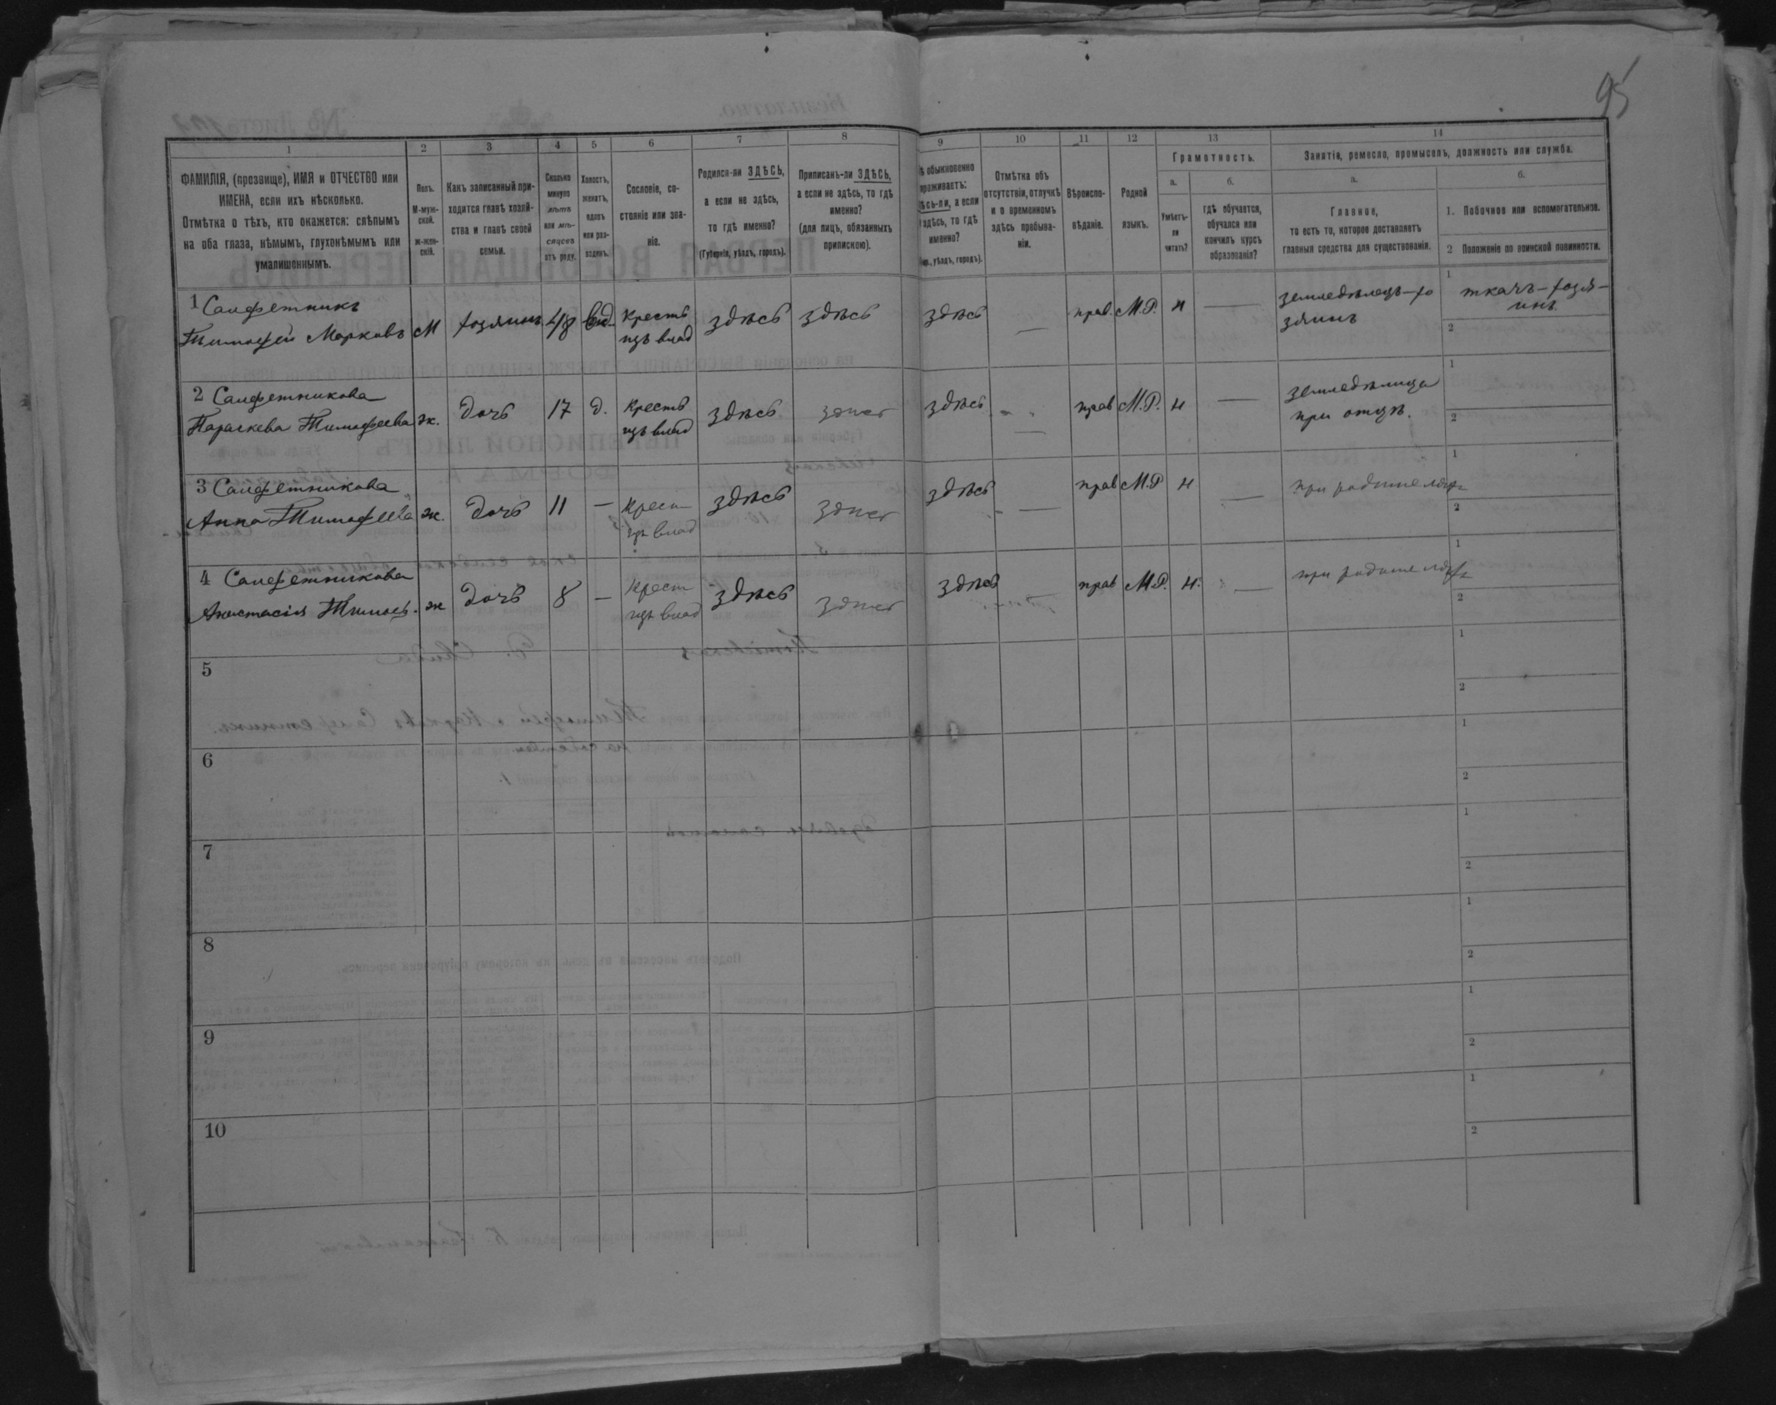 95
1 2 3 4 5 6 7 8 9 10 11 12 13 14
ФАМИЛІЯ, (прозвище), ИМЯ и ОТЧЕСТВО или
ИМЕНА, если ихъ нѣсколько.
Отмѣтка о тѣхъ, кто окажется: слѣпымъ
на оба глаза, нѣмымъ, глухонѣмымъ или
умалишеннымъ.
Полъ.
М-муж-
ской.
Ж-жен-
скій.
Какъ записанный при-
ходится главѣ хозяй-
ства и главѣ своей
семьи.
Сколько
минуло
лѣтъ
или мѣ-
сяцевъ
отъ роду.
Холостъ,
женатъ,
вдовъ
или раз-
веденъ.
Сословіе, со-
стояніе или зва-
ніе.
Родился-ли ЗДѢСЬ,
а если не здѣсь,
то гдѣ именно?
(Губернія, уѣздъ, городъ).
Приписанъ-ли ЗДѢСЬ,
а если не здѣсь, то гдѣ
именно?
(для лицъ, обязанныхъ
припискою).
обыкновенно
проживаетъ:
а если
здѣсь, то гдѣ
именно?
уѣздъ, городъ).
Отмѣтка объ
отсутствіи, отлучкѣ
и о временномъ
здѣсь пребыва-
ніи.
Вѣроиспо-
вѣданіе.
Родной
языкъ.
Грамотность.
а.
Умѣетъ-
ли
читать?
б.
гдѣ обучается,
обучался или
кончилъ курсъ
образованія?
Занятіе, ремесло, промыселъ, должность или служба.
а.
Главное,
то есть то, которое доставляетъ
главныя средства для существованія.
б.
1. Побочное или вспомогательное.
2 Положеніе по воинской повинности.
1 Салфетникъ
Тимофей Марковъ М хозяинъ 48 вд. Кресть изъ влад здѣсь здѣсь здѣсь — прав. М.Р. н — земледѣлецъ-хо
зяинъ
1 ткачъ-хозя-
инъ
2
2 Салфетникова
Параскева Тимофеева ж. дочь 17 д. Кресть изъ влад здѣсь здѣсь здѣсь — прав М.Р. н — земледѣлица
при отцѣ.
1
2
3 Салфетникова
Анна Тимофеева ж. дочь 11 — Крест изъ влад здѣсь здѣсь здѣсь — прав М.Р н — при родителяхъ
1
2
4 Салфетникова
Анастасія Тимоф. ж дочь 8 — Крест изъ влад здѣсь здѣсь здѣсь прав М.Р. н. — при родителяхъ
1
2
5
1
2
6
1
2
7
1
2
8
1
2
9
1
2
10
1
2